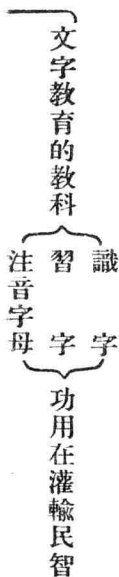 文字教育的教科
識字
習字
注音字母
功用在灌輸民智